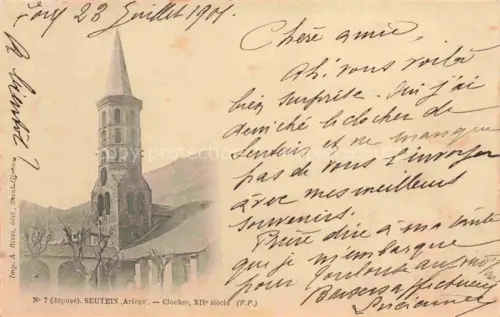 Foix 23 Juillet 1901.
Chère amie,
Ah, vous voilà
bien surprise. Oui j'ai
déniché le clocher de
Sentein et ne manque
pas de vous l'envoyer
avec mes meilleurs
souvenirs.
Prière dire à ma tante
que je m'embarque
pour Toulouse
Baisers affectueux
Lucienne
à suivre
Imp. A. Rives, édit. Saint-Girons
N° 7 (déposé). SEUTEIN (Ariège). — Clocher, XIIe siècle (F.P.)